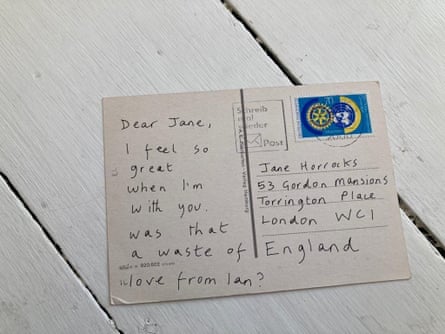 Dear Jane,
I feel so
great
when I'm
with you.
was that
a waste of
love from Ian?
Schreib
mal
wieder
Post
70
Jane Horrocks
53 Gordon Mansions
Torrington Place
London WC1
England